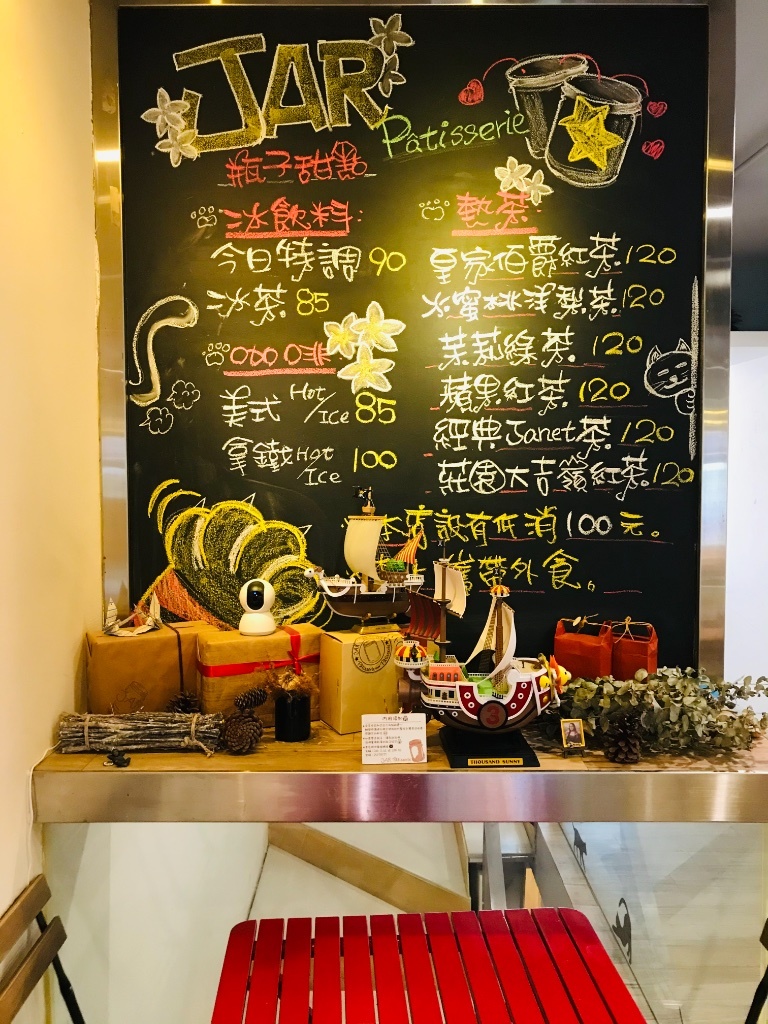 JAR
Pâtisserie
瓶子甜點
冰飲料:
今日特調 90
冰茶 85
咖啡
美式 Hot/Ice 85
拿鐵 Hot/Ice 100
熱茶
皇家伯爵紅茶 120
水蜜桃洋梨茶 120
茉莉綠茶 120
蘋果紅茶 120
經典Janet茶 120
莊園大吉嶺紅茶 120
本店設有低消100元。
攜帶外食。
THOUSAND SUNNY